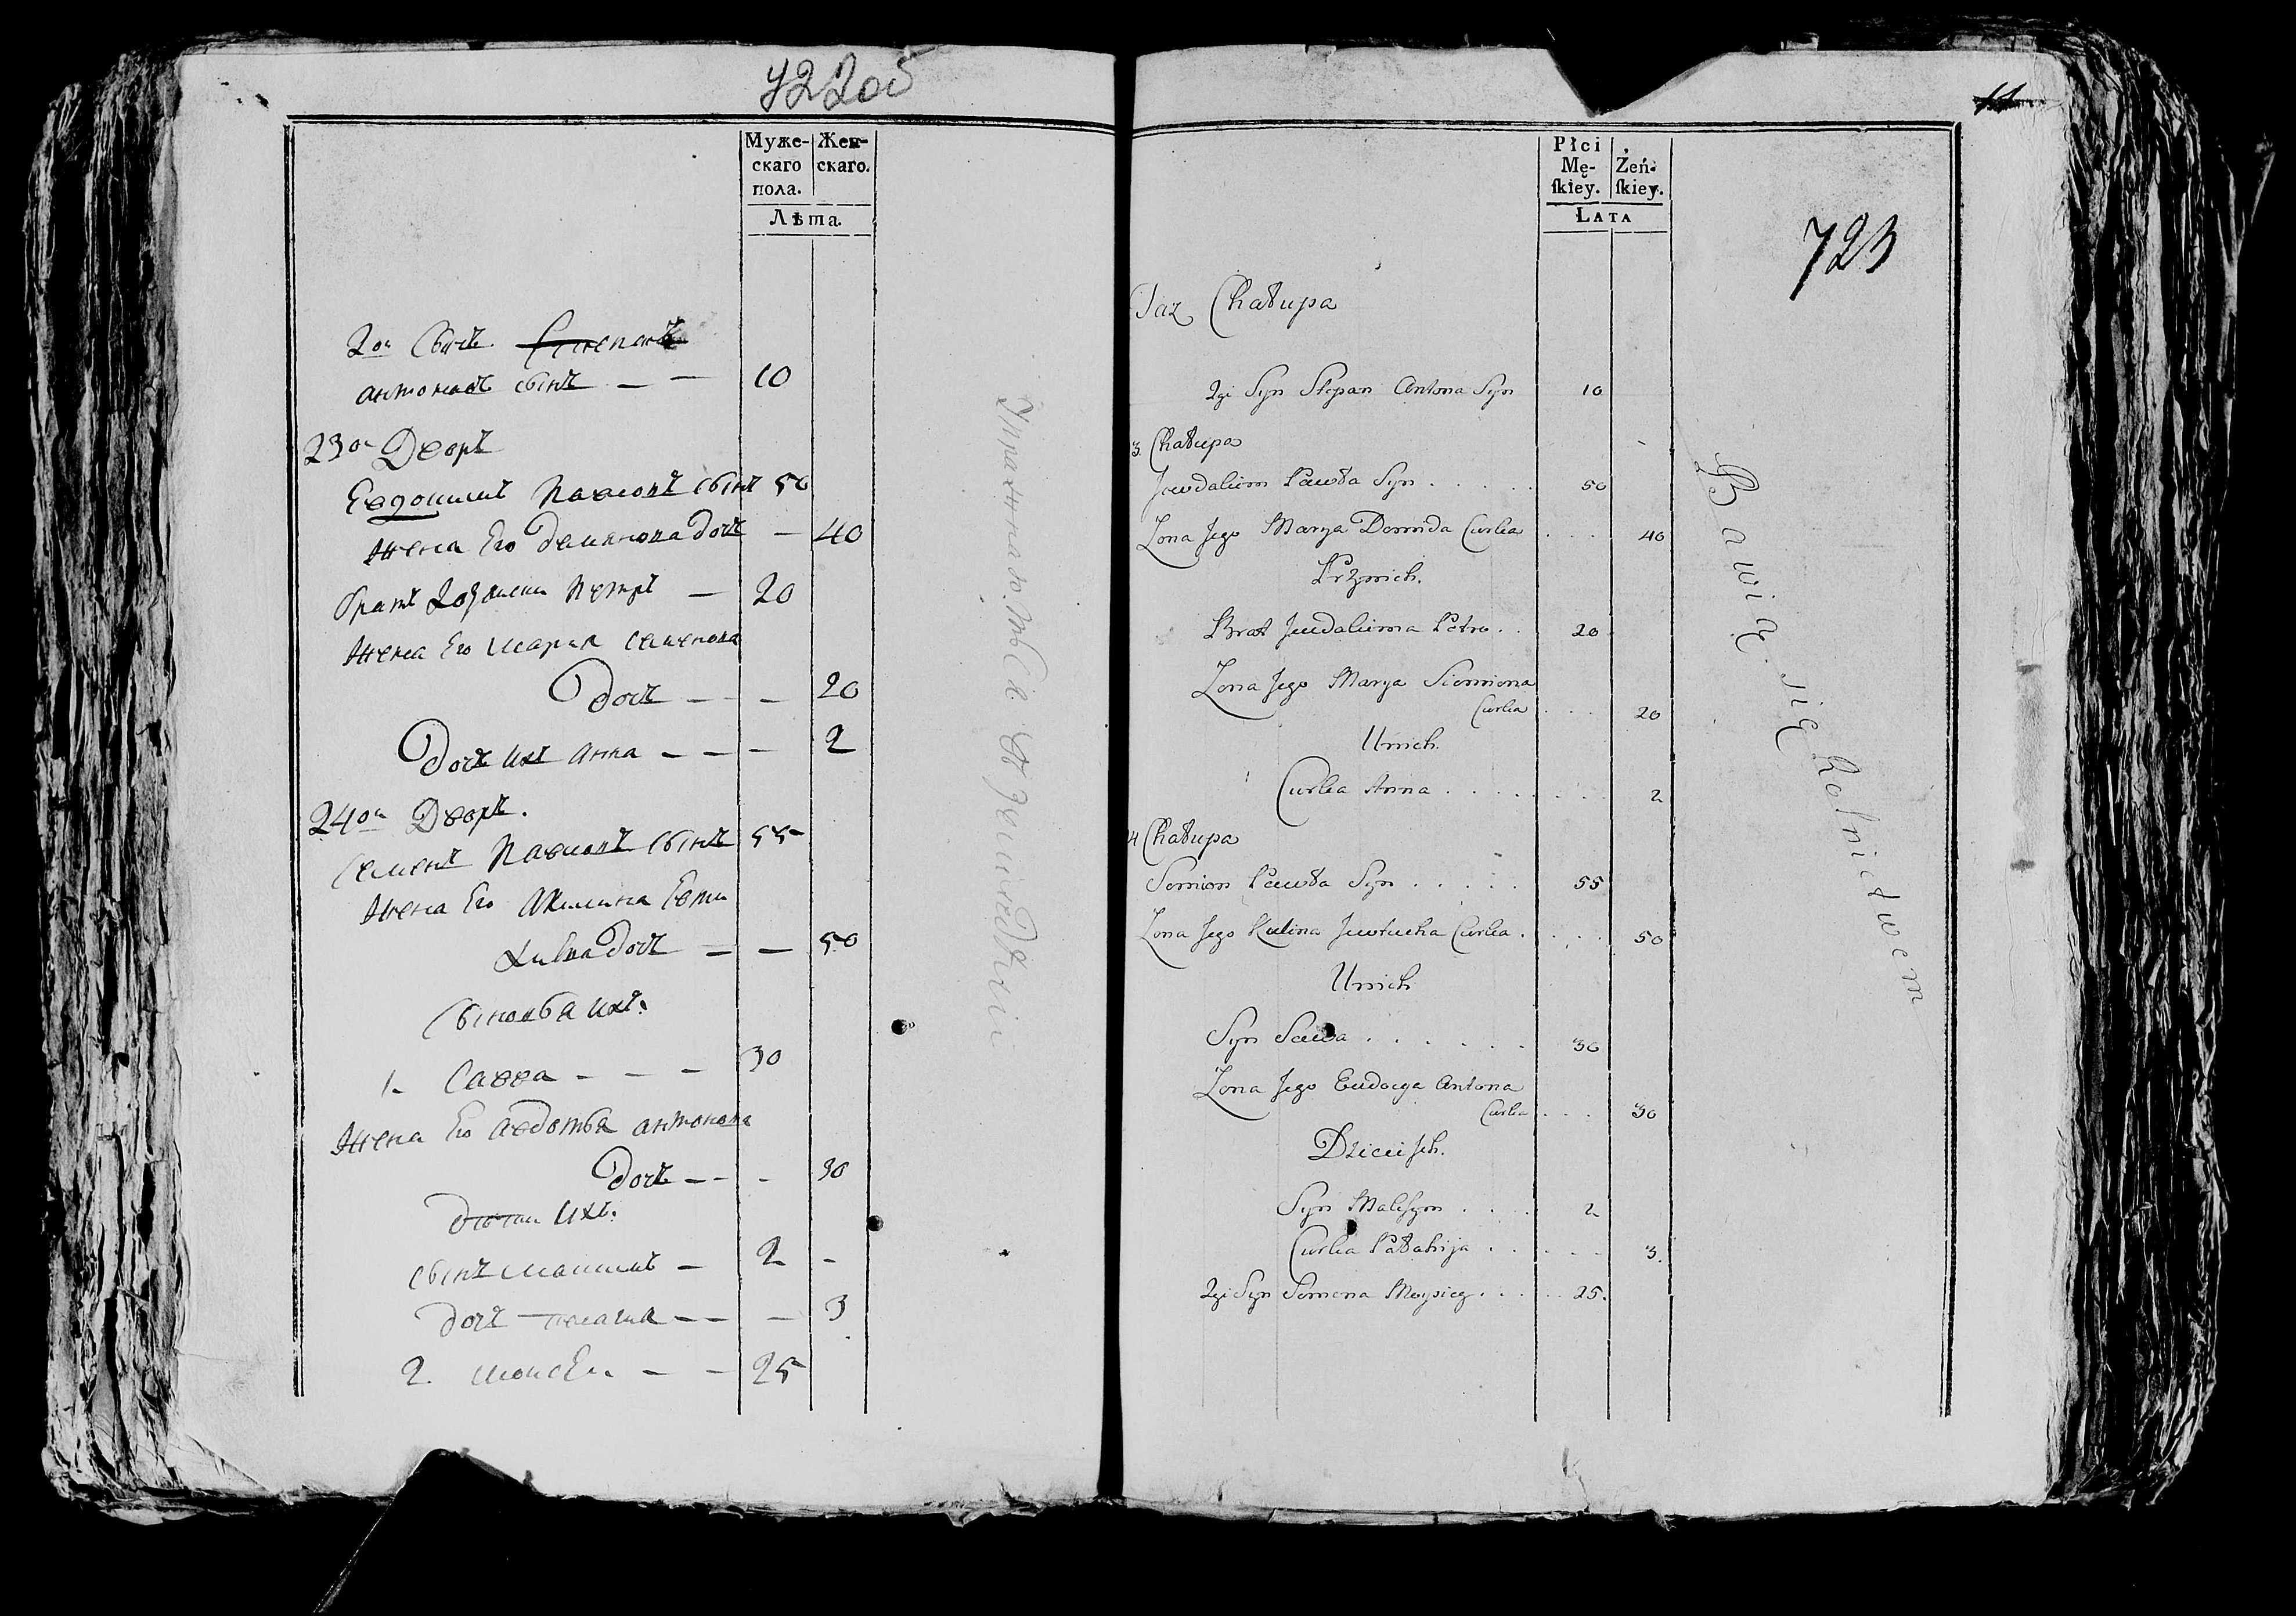 722об
Муже-
скаго
пола.
Жен-
скаго.
Лѣта.
2ои Сынъ Степанъ
антоновъ сынъ — — 10
23ои Дворъ
Евдокимъ Павловъ сынъ 50
жена Его Демидова дочь — 40
братъ Евдокима Петръ — 20
жена Его Мария семенова
Дочь — — 20
Дочь ихъ Анна — — — 2
24ои Дворъ.
Семенъ Павловъ сынъ 55
жена Его Акилина Евти
хиева дочь — — 50
Сыновья ихъ:
1. Савва — — — 30
жена Его авдотья антонова
Дочь — — - 30
дѣти ихъ:
сынъ Максимъ — 2 -
дочь — — — 3
2. Моисеи — — 25
Упражнаютьса въ земледѣлии
723
Płci
Mę-
ſkiey.
Żeń-
ſkiey.
LATA
Chałupa
2gi Syn Stepan Antona Syn 10
3. Chałupa
Jewdakim Pawła Syn . . . . . 50
Zona Jego Marya Demida Curka . . . 40
Prznich.
Brat Jewdakima Petro . . 20
Zona Jego Marya Siemiona
Curka . . . 20
Unich.
Curka Anna . . . . . . . . 2
4 Chałupa
Semion Pawła Syn . . . . . 55
Zona Jego Kulina Jewtucha Curka . . . . 50
Unich
Syn Sawa . . . . . . 30
Zona Jego Eudocya Antona
Curka . . . 30
Dzieci Ich.
Syn Maksym . . . . 2
Curka Pałahija . . . . . . 3.
2gi Syn Semena Moysiey . . . . 25.
Bawią się Rolnictwem